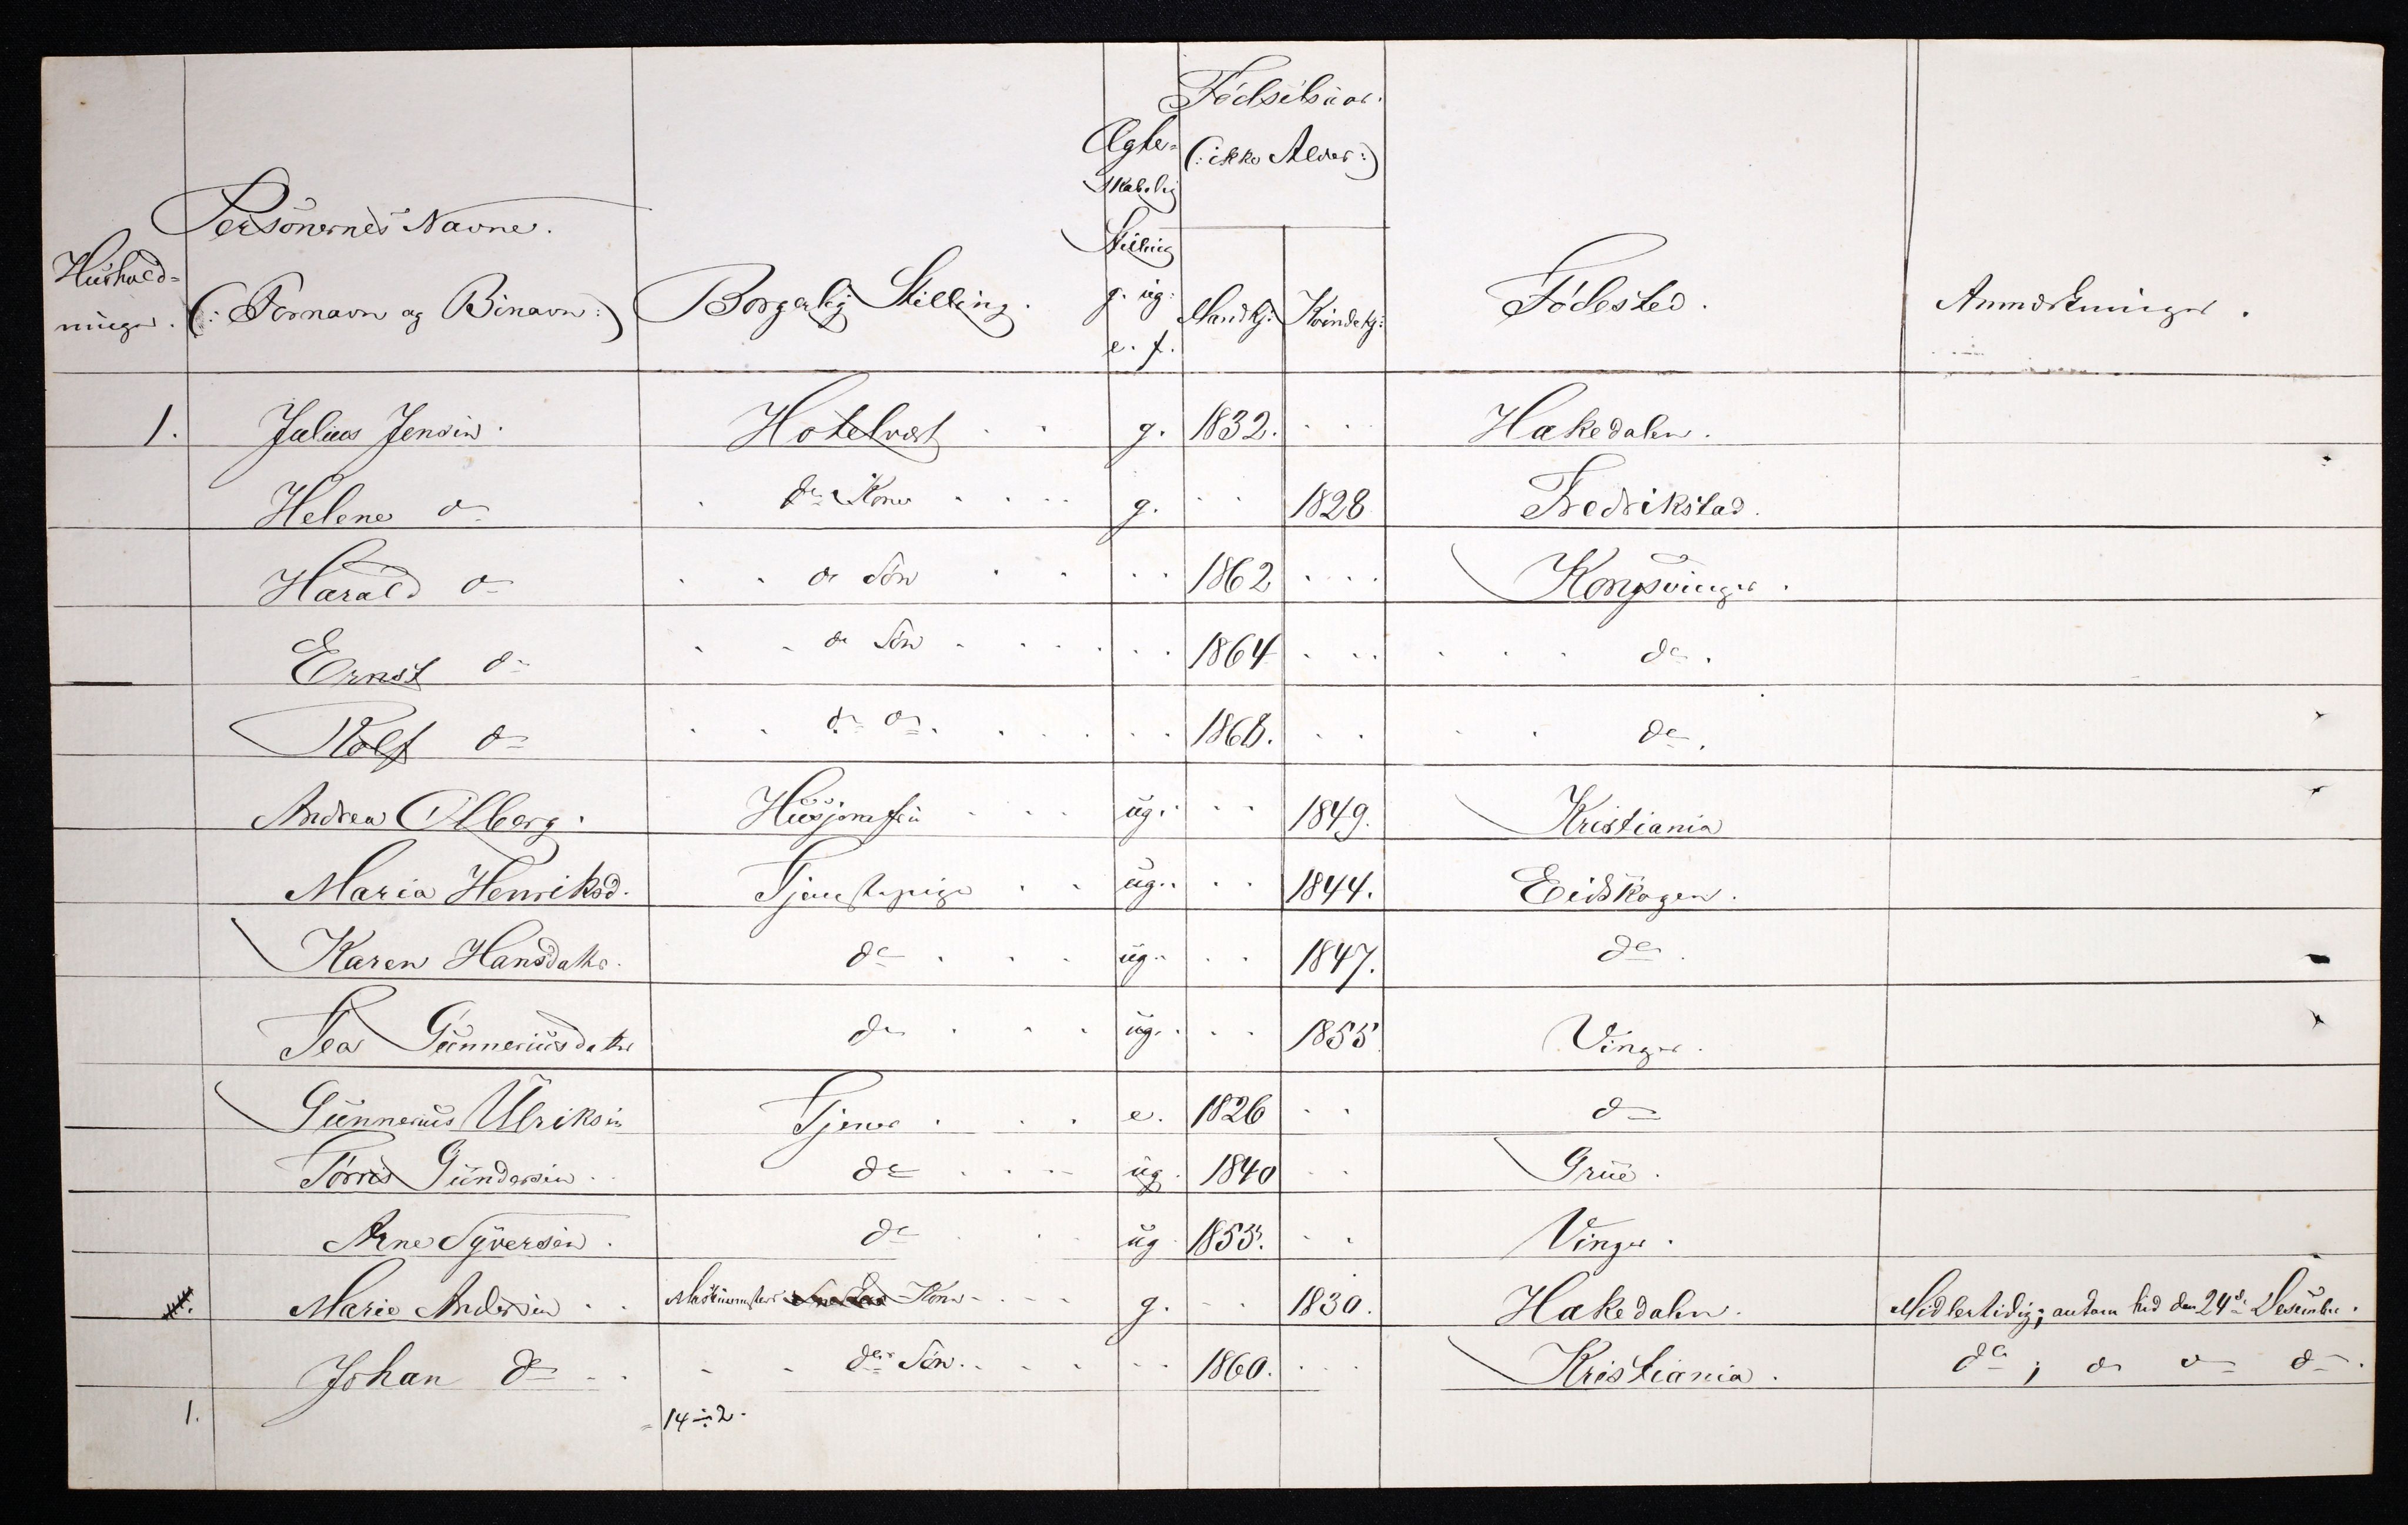 Fødselsaar.
(: ikke Alder :)
Ægte-
skabelig
Stilling
g. ug.
e. f.
Personernes Navne.
(: Fornavn og Binavn :)
Hushold-
ninger.
Borgerlig Stilling.
Mandkj: Kvindekj:
Fødested.
Anmærkninger.
1. Julius Jensen. Hotelvært g. 1832. Hakedalen.
Helene do do Kone g. 1828 Fredrikstad.
Harald do do Søn 1862 Kongsvinger.
Ernst do do Søn 1864 do.
Rolf do do do. 1868. do.
Andrea Olberg. Husjomfru ug. 1849. Kristiania
Maria Henriksd. Tjenestepige ug. 1844. Eidskogen.
Karen Hansdatter. do ug. 1847. do.
Tea Gunneriusdatter do ug. 1855 Vinger.
Gunnerius Ulriksen Tjener e. 1826 do
Törris Gundersen do ug. 1840 Grue.
Arne Syversen. do ug 1855. Vinger.
Marie Andersen Maskinmesters Kone g. 1830. Hakedalen. Midlertidig; ankom hid den 24de Desember.
Johan do des Søn. 1860. Kristiania. do; do do do.
1. = 14 ÷ 2.